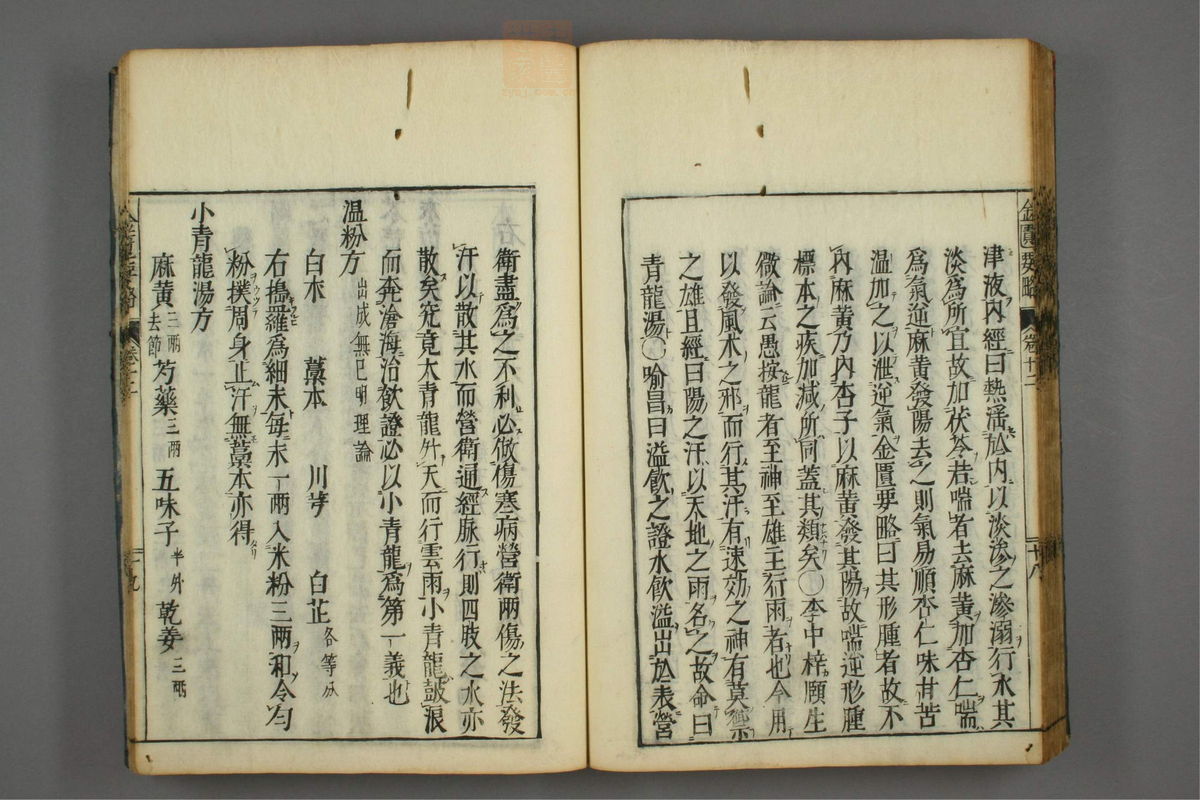 津液內經曰熱淫於内以淡滲之滲溺行水其
淡爲所宜故加伏苓若喘者去麻黄加杏仁喘
爲氣逆麻黄發陽去之則氣易順杏仁味甘苦
温加之以泄逆氣金匱要略曰其形腫者故不
内麻黄乃内杏子以麻黄發其陽故喘逆形腫
標本之疾加减所同蓋其類矣○李中梓頤生
微論云愚按龍者至神至雄主行雨者也今用
以發風木之邪而行其汗有速効之神有莫禦
之雄且經曰陽之汗以天地之雨名之故命曰
青龍湯○喻昌曰溢飲之證水飲溢出於表營
衛盡爲之不利必倣傷寒病營衛兩傷之法發
汗以散其水而營衛通經脉行則四肢之水亦
散矣究竟大青龍升天而行雲雨小青龍皷浪
而奔滄海治飲證必以小青龍爲第一義也
温粉方 出成無已明理論
白朮 藁本 川芎 白芷 各等分
右搗羅爲細末每末一兩入米粉三兩和令勻
粉撲周身止汗無藁本亦得
小青龍湯方
麻黄 三兩去節 芍藥 三兩 五味子 半升 乾姜 三兩
金匱要略 卷十二 十八
卷十二 十九